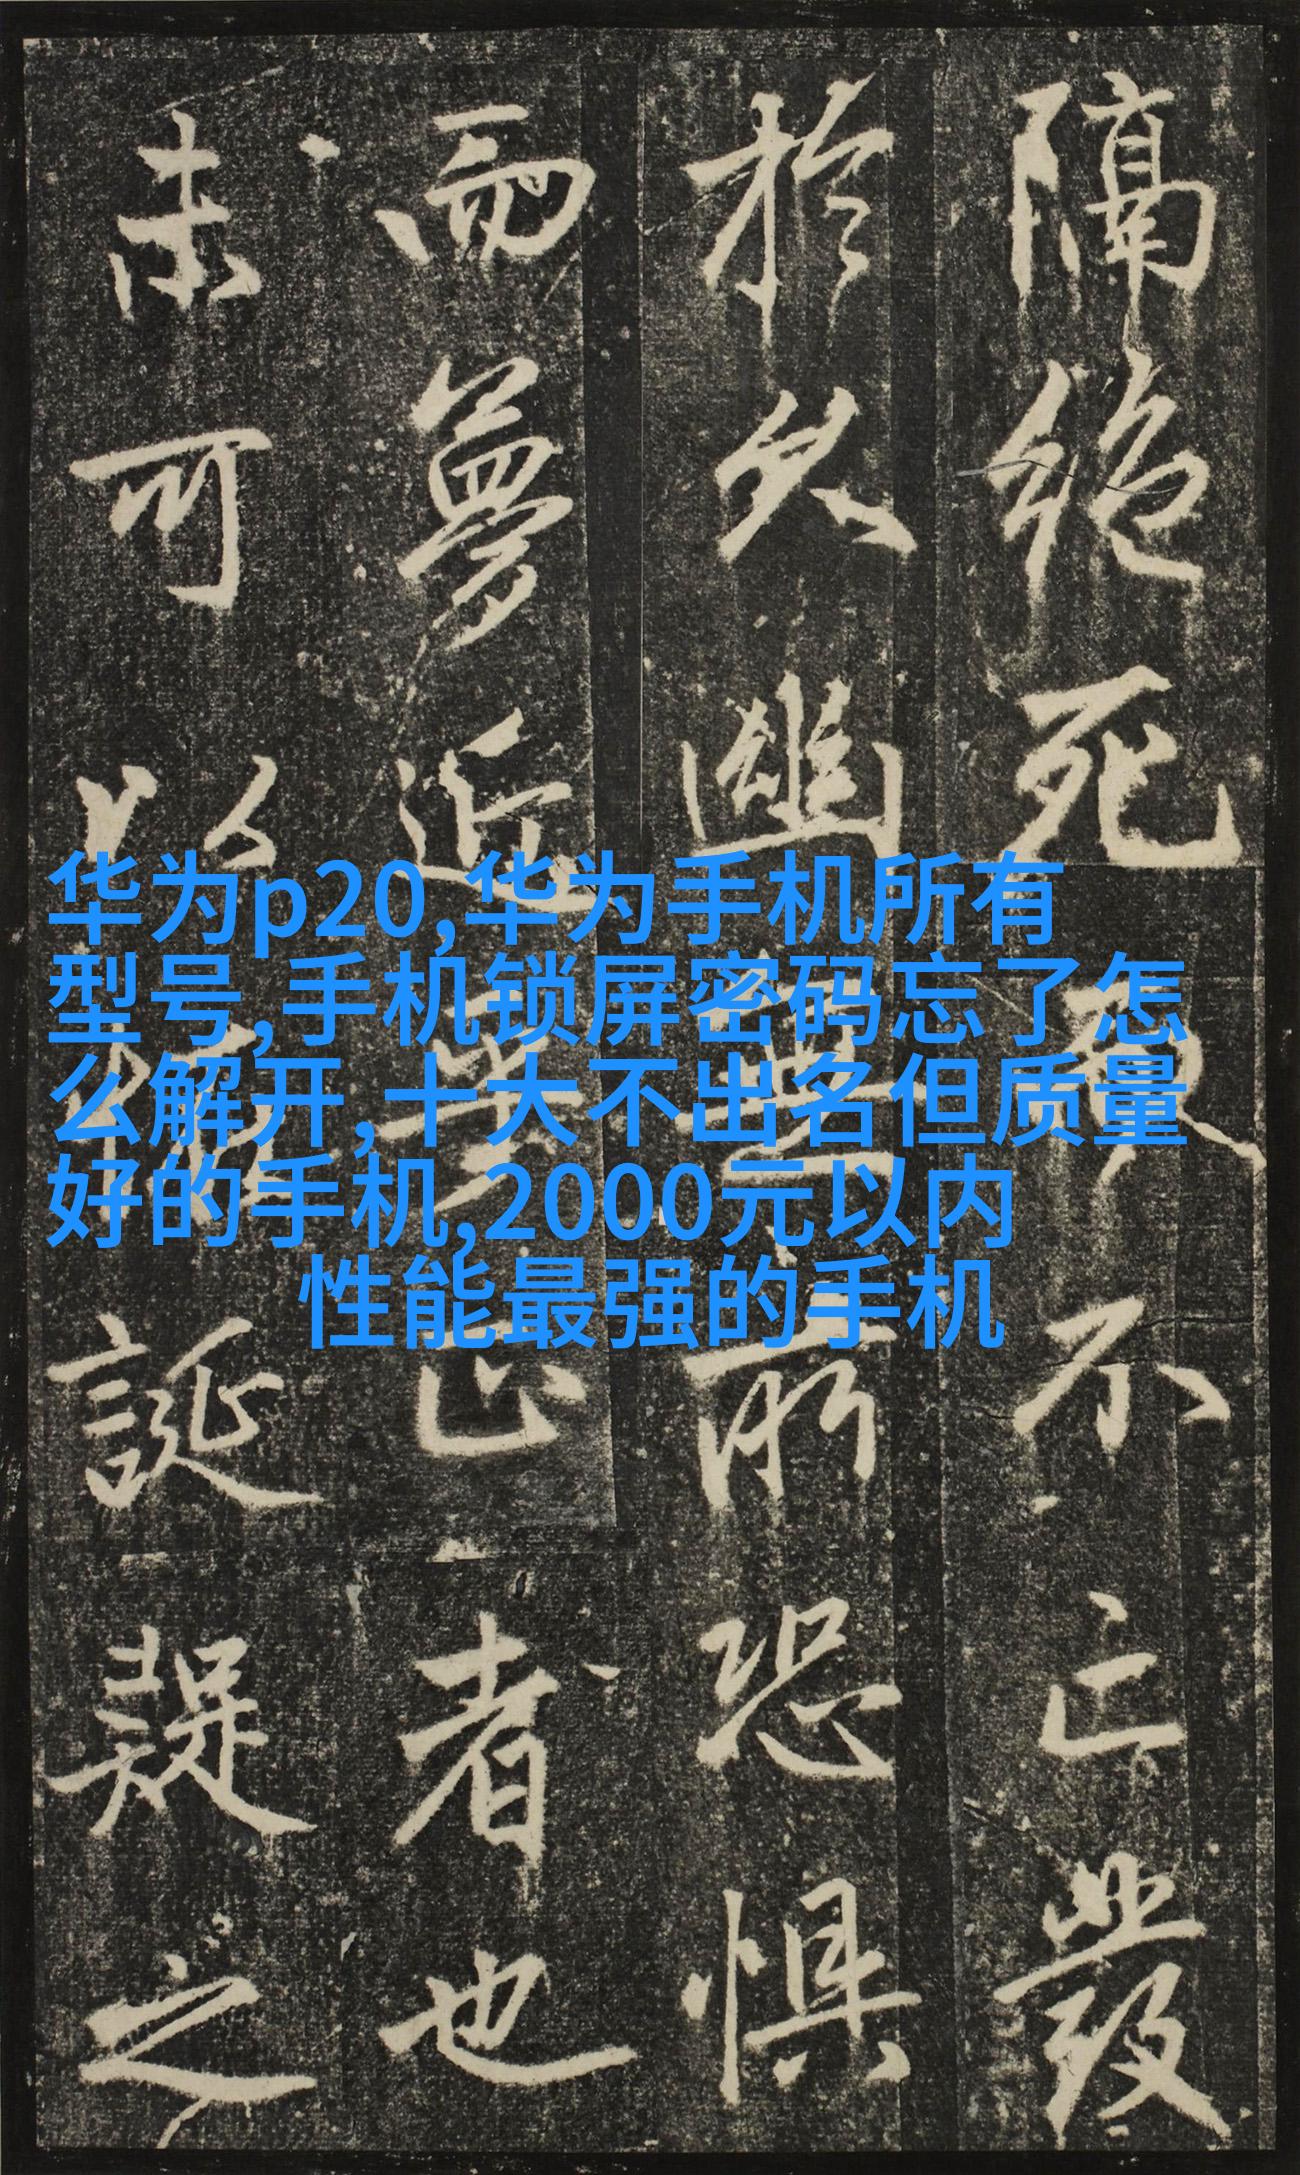 隔絶死不亡發
於久幽無所恐懼
而夢近正者也
未可以誕疑之
华为p20,华为手机所有
型号,手机锁屏密码忘了怎
么解开,十大不出名但质量
好的手机,2000元以内
性能最强的手机